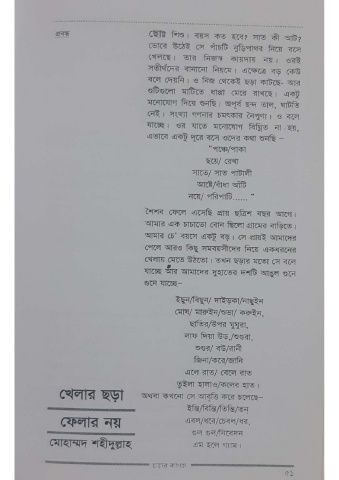 প্রবন্ধ
ছোট্ট শিশু। বয়স কত হবে? সাত কী আট?
ভোরে উঠেই সে পাঁচটি নুড়িপাথর নিয়ে বসে
খেলছে। তার নিজস্ব কায়দায় নয়। ওরই
সতীর্থদের বানানো নিয়মে। এক্ষেত্রে বড় কেউ
বলে দেয়নি। ও নিজ থেকেই ছড়া কাটছে- আর
গুটিগুলো মাটিতে থাপ্পা মেরে রাখছে। একটু
মনোযোগ দিয়ে শুনছি। অপূর্ব ছন্দ তাল, ঘাটতি
নেই। সংখ্যা গণনার চমৎকার নৈপুণ্য। ও বলে
যাচ্ছে। ওর যাতে মনোযোগ বিঘ্নিত না হয়,
এভাবে একটু দূরে বসে ওদের কথা শুনছি –
"পঞ্চে/পাকা
ছয়ে/ রেখা
সাতে/ সাত পাটালী
আষ্টে/বাঁধা আঁটি
নয়ে/ পরিপাটি...... "
শৈশব ফেলে এসেছি প্রায় ছত্রিশ বছর আগে।
আমার এক চাচাতো বোন ছিলো গ্রামের বাড়িতে।
আমার চে' বয়সে একটু বড়। সে প্রায়ই আমাদের
পেলে আরও কিছু সমবয়সীদের নিয়ে একধরনের
খেলায় মেতে উঠতো। তখন ছড়ার মতো সে বলে
যাচ্ছে আর আমাদের দুহাতের দশটি আঙুল গুনে
গুনে যাচ্ছে–
ইছুন/বিছুন/ দাইড়কা/নাছুইন
মোষ/ মারুইন/শুভা/ করুইন,
ছাতির/উপর মুখুরা,
লাফ দিয়া উড/শুশুরা,
শুশুর/ বউ/রানী
জিনা/করে/জানি
এলে রাত/ বেলে রাত
তুইলা হালাও/কলের হাত।
অথবা কখনো সে আবৃত্তি করে চলেছে-
ইন্তি/বিন্তি/তিন্তি/তন
এম হলে গ্যাম।
খেলার ছড়া
ফেলার নয়
মোহাম্মদ শহীদুল্লাহ
ছড়ার কাগজ
৫১